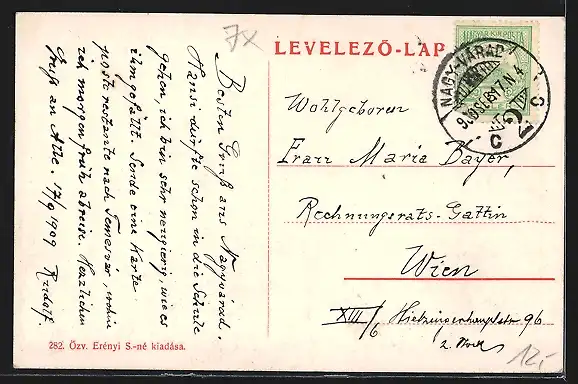 7x
LEVELEZŐ-LAP
NAGY-VÁRAD
MAGYAR KIR. POSTA
Besten Gruß aus Nagyvárad,
Hansi dürfte schon in die Schule
gehen, ich bin sehr neugierig, wie es
ihm gefällt. Sende eine Karte
poste restante nach Temesvár, wohin
ich morgen früh abreise. Herzlichen
Gruß an Alle. 17/9 1909 Rudolf.
Wohlgeboren
Frau Marie Bayer,
Rechnungsrats-Gattin
Wien
XIII/6 Hietzingerhauptstr 96
2. Stock
12,-
282. Özv. Erényi S.-né kiadása.